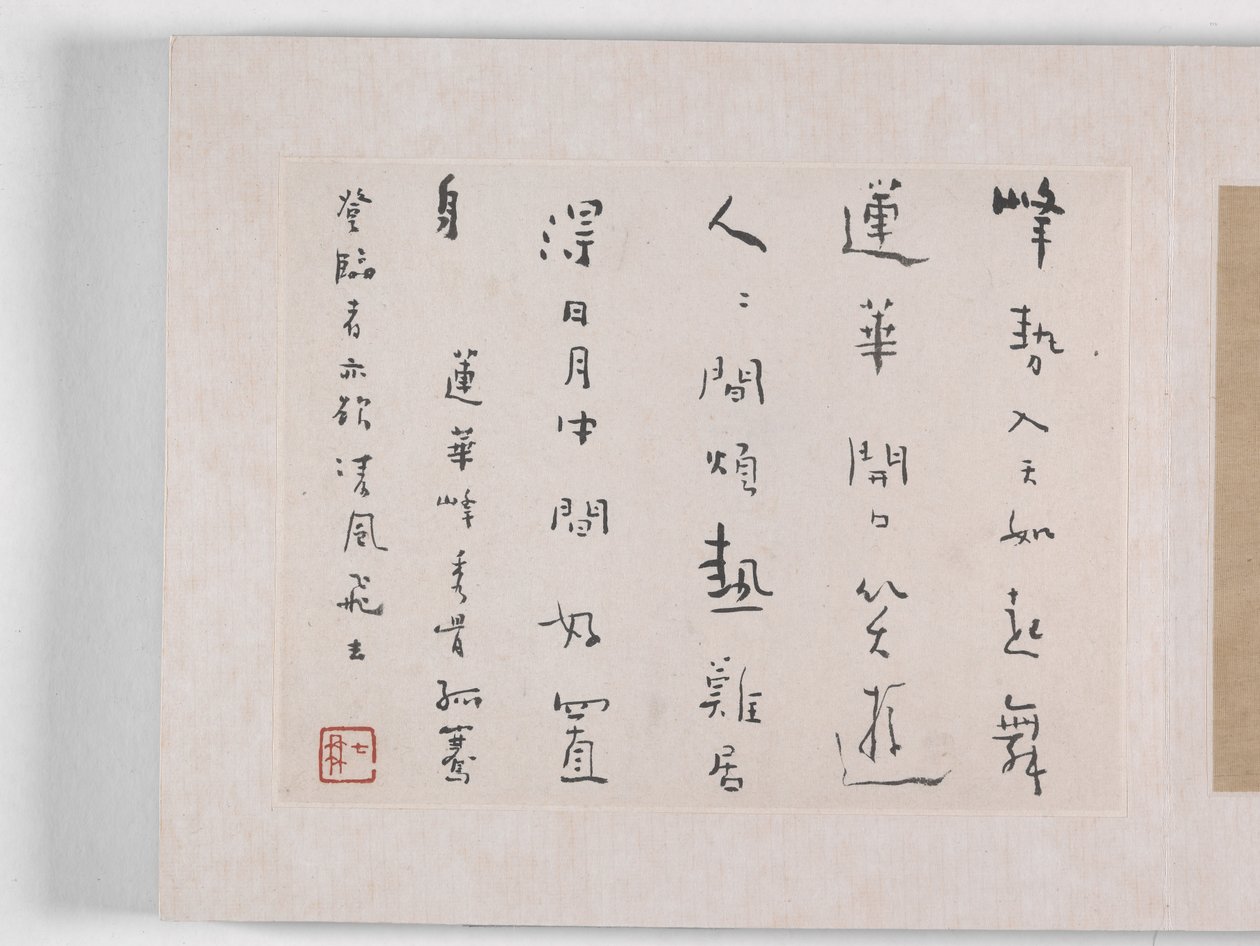 峰勢入天如起舞
蓮華開口笑遊
人〻間煩熱難居
得日月中間好置
身　蓮華峰秀骨孤騫
登臨者亦欲清風飛去